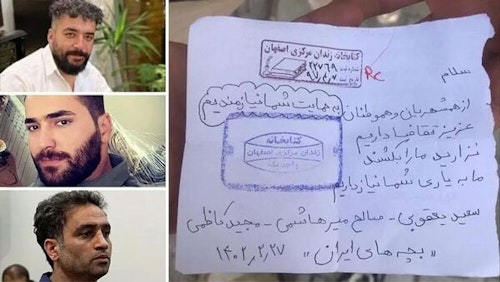 کتابخانه زندان مرکزی اصفهان
شماره ثبت ۲۲۷۶۹
تاریخ ثبت ۹۷
RC
سلام
به حمایت شما نیازمندیم
از همشهریان و هموطنان
عزیز تقاضا داریم
نزارید ما را بکشند
ما به یاری شما نیاز داریم
کتابخانه
زندان مرکزی اصفهان
واحد یک
سعید یعقوبی - صالح میرهاشمی - مجید کاظمی
"بچه های ایران" ۱۴۰۲,۲,۲۷